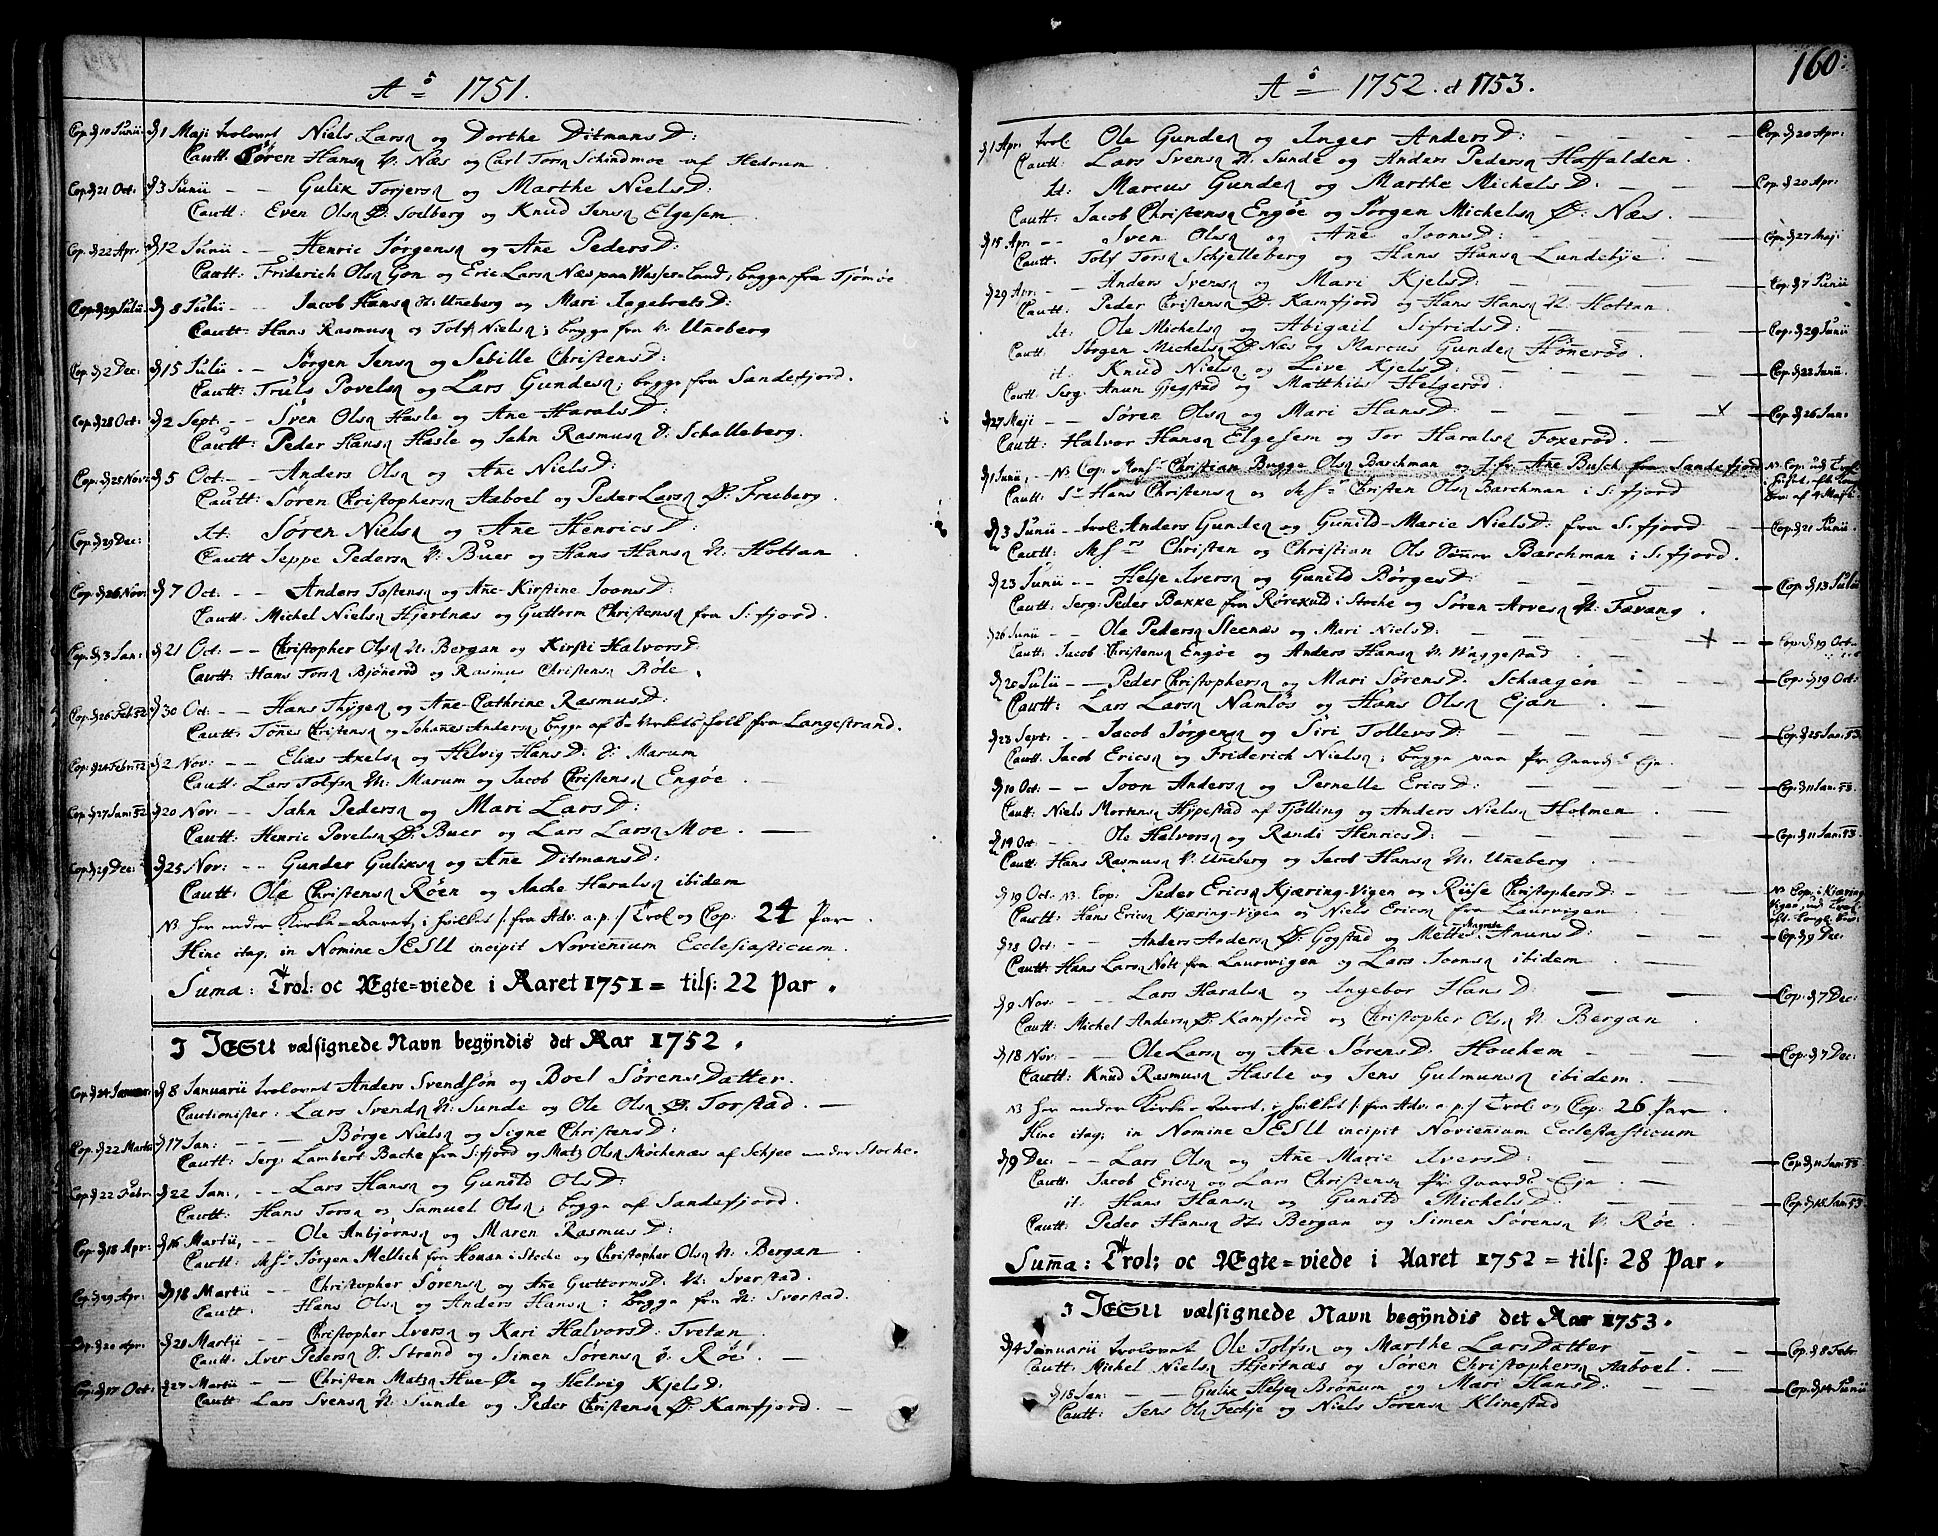 Aº 1751.
Cop. d 10 Junii. d 1 Maji trolovet Niels Lars. og Dorthe DitmansD:
Cautt: Sören Hans. N: Næs og Carl Tors. Schindmoe af Hedrum
Cop. d 21 Oct: d 3 Junii - - Gulik Torjers. og Marthe NielsD:
Cautt: Even Ols. Ø: Solberg og Knud Jens. Elgesem
Cop. d 22 Apr: d 12 Junii - - Henric Jörgens. og Ane PedersD:
Cautt: Friderich Ols. Gon og Eric Lars. Næs paa Wasser-Land; begge fra Tjömöe
Cop. d 29 Julii: d 8 Julii - - Jacob Hans. N: Uneberg og Mari IngebretsD:
Cautt: Hans Rasmus. og Tolf Niels.; begge fra N: Uneberg
Cop. d 2 Dec: d 15 Julii - - Jörgen Jens. og Sebille ChristensD:
Cautt: Truls Povels. og Lars Gundes.; begge fra Sandefjord.
Cop. d 28 Oct: d 2 Sept. - - Sven Ols. Hasle og Ane HaralsD:
Cautt: Peder Hans. Hasle og Jahn Rasmus. Schalleberg.
Cop: d 25 Nov: d 5 Oct. - - Anders Ols. og Ane NielsD:
Cautt: Sören Christophers. Aaboel og Peder Lars. Ø: Freberg.
Cop: d 29 Dec: it: Sören Niels. og Ane HenricsD:
Cautt Seppe Peders. N: Buer og Hans Hans. N: Hottan.
Cop. d 26 Nov: d 7 Oct. - - Anders Tostens. og Ane-Kirstine JoonsD:
Cautt: Michel Niels. Hjertnæs og Guttorm Christens. fra S:fjord.
Cop: d 3 Jan: d 21 Oct: - - Christopher Ols. N: Bergan og Kirsti HalvorsD:
Cautt: Hans Tors. Bjöneröd og Rasmus Christens. Röle.
Cop. d 26 Feb: 52 d 30 Oct: - - Hans Thyges. og Ane-Cathrine RasmusD:
Cautt: Tönes Christens. og Johanes Anders. begge af Verkets folk fra Langestrand.
Cop: d 24 Febr: 52 d 2 Nov: - - Elias Axels. og Helvig HansD: Marum
Cautt: Lars Tolfs. N: Marum og Jacob Christens. Engöe.
Cop: d 27 Jan: 52 d 20 Nov: - - Jahn Peders. og Mari LarsD:
Cautt: Henric Povels. Ø: Buer og Lars Lars. Moe.
Cop: d 29 Dec: d 25 Nov: - - Gunder Guliks. og Ane DitmansD:
Cautt: Ole Christens. Röen og Aache Harals. ibidem
NB her ender Kirke-aaret, i hvilket /: fra Adv. a.p. :/ Trol og Cop: 24 Par.
Hinc itaq; in Nomine JESU incipit Novienium Ecclesiasticum.
Suma: Trol: oc Ægte=viede i Aaret 1751 = tils: 22 Par.
I JESU velsignede Navn begÿndis det Aar 1752.
Cop. d 24 Januar: d 8 Januarii trolovet Anders Svendsön og Boel SörensDatter.
Cautionister: Lars Svends. N: Sunde og Ole Ols. Ø: Torstad.
Cop: d 22 Martii d 17 Jan: - - Börge Niels. og Signe ChristensD:
Cautt: Serg: Lambert Bache fra S:fjord og Mats Ols. Möchenæs af Schjee under Stoche.
Cop: d 22 Febr: d 22 Jan: - - Lars Hans. og Gunild OlsD:
Cautt: Hans Tors. og Samuel Ols.; begge af Sandefjord.
Cop: d 18 Apr: d 16 Martii, Ole Anbjörns. og Maren RasmusD:
Cautt: Msr Jörgen Mellich fra Honan i Stoche og Christopher Ols. N: Bergan
Cop: d 29 Apr: d 18 Martii - - Christopher Sörens. og Ane GuttormsD: N: Sverstad.
Cautt: Hans Ols. og Anders Hans.; begge fra N: Sverstad.
Cop: d 20 Apr: d 20 Martii - - Christopher Ivers. og Kari HalvorsD: Tvetan.
Cautt: Iver Peders. Strand og Simen Sörens. N: Röe.
Cop: d 17 Oct: d 27 Martii - - Christen Mats. Hue-Öe og Helvig KjelsD:
Cautt: Lars Svens. N: Sunde og Peder Christens. Ø: Kamfjord.
160:
Aº 1752. et 1753.
d 1 Apr: trol. Ole Gundes. og Inger AndersD: Cop. d 20 Apr:
Cautt: Lars Svens. N: Sunde og Anders Peders. Haffalden.
it: Marcus Gundes. og Marthe MichelsD: Cop: d 20 Apr:
Cautt: Jacob Christens. Engöe og Jörgen Michels. Ø: Næs.
d 15 Apr: - - Sven Ols. og Ane JoonsD: Cop: d 27 Maji
Cautt: Tolf Tors. Schjelleberg og Hans Hans. Lundebye.
d 29 Apr: - - Anders Svens. og Mari KjelsD: Cop: d 7 Junii
Cautt: Peder Christens. Ø: Kamfjord og Hans Hans. N: Hottan.
it: Ole Michels. og Abigail SifridsD: Cop: d 29 Junii
Cautt: Jörgen Michels. Ø: Næs og Marcus Gundes. Hönerös.
it: Knud Niels. og Live KjelsD: Cop: d 22 Junii.
Cautt: Serg: Anun Gjegstad og Matthies Helgeröd.
d 27 Maji - - Sören Ols. og Mari HansD: x Cop: d 26 Jan:
Cautt: Halvor Hans. Elgesem og Tor Harals. Foxeröd.
d 1 Junii, - NB Cop: Monsr Christian Bugge Ols. Barchman og Jfr Ane Busch fra Sandefjord NB Cop. ud Trol.
Cautt: Sr Hans Christens. og Msr Christen Ols. Barchman i S:fjord
d 3 Junii - trol. Anders Gundes. og Gunild-Marie NielsD: fra S:fjord Cop: d 21 Junii.
Cautt: Msrs Christen og Christian Ols Sönner Barchman i S:fjord.
d 23 Junii - - Helje Ivers. og Gunild BörgesD: Cop: d 13 Julii
Cautt: Serg: Peder Bakke fra Rörekuld i Stoche og Sören Arves. N: Fævang.
d 26 Junii - - Ole Peders. Steenæs og Mari NielsD: + Cop: d 19 Oct.
Cautt: Jacob Christens. Engöe og Anders Hans. N: Waggestad.
d 20 Julii - - Peder Christophers. og Mari SörensD: Schaagen Cop: d 19 Oct:
Cautt: Lars Lars. Namlös og Hans Ols. Ejan.
d 23 Sept: - - Jacob Jörgens. og Siri TollersD: Cop: d 25 Jan: 53.
Cautt: Jacob Erics. og Friderich Niels.; begge paa Pr: Gaards Eje.
d 10 Oct: - - Joon Anders. og Pernelle EricsD: Cop: d 11 Jan: 53.
Cautt: Niels Mortens. Hÿpestad af Tjölling og Anders Niels. Holmen
d 19 Oct. - - Ole Halvors. og Randi HenricsD: Cop: d 11 Jan: 53.
Cautt: Hans Rasmus. N: Uneberg og Jacob Hans. N: Uneberg
d 19 Oct. NB. Cop: Peder Erics. Kjæring-Vigen og Riise ChristophersD: NB Cop: i Kjæring-Vigen ud Trol.
Cautt: Hans Erics. Kjæring-Vigen og Niels Erics. fra Laurvigen
d 28 Oct: - - Anders Anders. Ø: Gogstad og Mette Angrete AnunsD: Cop: d 9 Dec:
Cautt: Hans Lars. Nolt fra Laurvigen og Lars Joons. ibidem
d 9 Nov: - - Lars Harals. og Ingebor HansD: Cop: d 7 Dec:
Cautt: Michel Anders. Ø: Kamfjord og Christopher Ols. N: Bergan
d 18 Nov: - - Ole Lars. og Ane SörensD: Houchem Cop: d 7 Dec:
Cautt: Knud Rasmus. Hasle og Jens Gulmuns. ibidem.
NB her ender Kirke-aaret, i hvilket /: fra Adv: a.p. :/ Trol: og Cop: 26 Par
Hinc itaq; in Nomine JESU incipit Novienium Ecclesiasticum
d 9 Dec: - - Lars Ols. og Ane Marie IversD: Cop: d 11 Jan: 53
Cautt: Jacob Erics. og Lars Christens. Pr: Gaards Eje.
it: Hans Hans. og Gunild MichelsD: Cop: d 18 Jan: 53.
Cautt: Peder Hans. N: Bergan og Simen Sörens. N: Röe.
Suma: Trol: oc Ægte=viede i Aaret 1752 = tils: 28 Par.
I JESU vælsignede Navn begÿndis det Aar 1753.
d 4 Januarii trolovet Ole Tolfs. og Marthe LarsDatter Cop: d 8 Febr:
Cautt: Michel Niels. Hjertnæs og Sören Christophers. Aaboel.
d 18 Jan: - - Gulik Heljes. Brönum og Mari HansD: Cop: d 14 Junii
Cautt: Jens Ols. Feckje og Niels Sörens. Klinestad